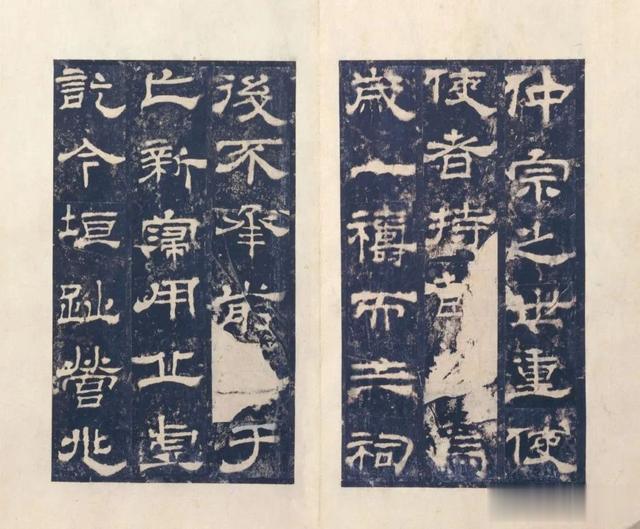 仲宗之世重使
使者持節 焉
歲一禱而三祠
後不承前 于
亡新寖用丘虛
訖今垣趾營兆